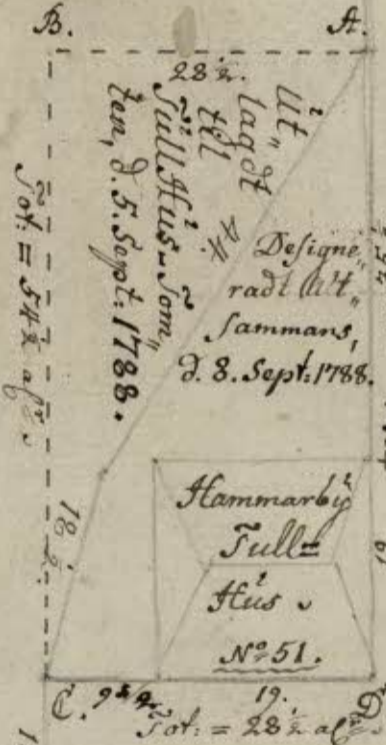 B. A.
28½.
Ut„
lagdt
till
TullHus-Tom„
ten, d. 5. Sept: 1788.
44.
Designe„
radt Alt„
sammans,
d. 8. Sept: 1788.
Tot: = 54½ alr.
18½.
Hammarby
Tull=
Hus
No 51.
C. 9½ 19. D
Tot: = 28½ alr